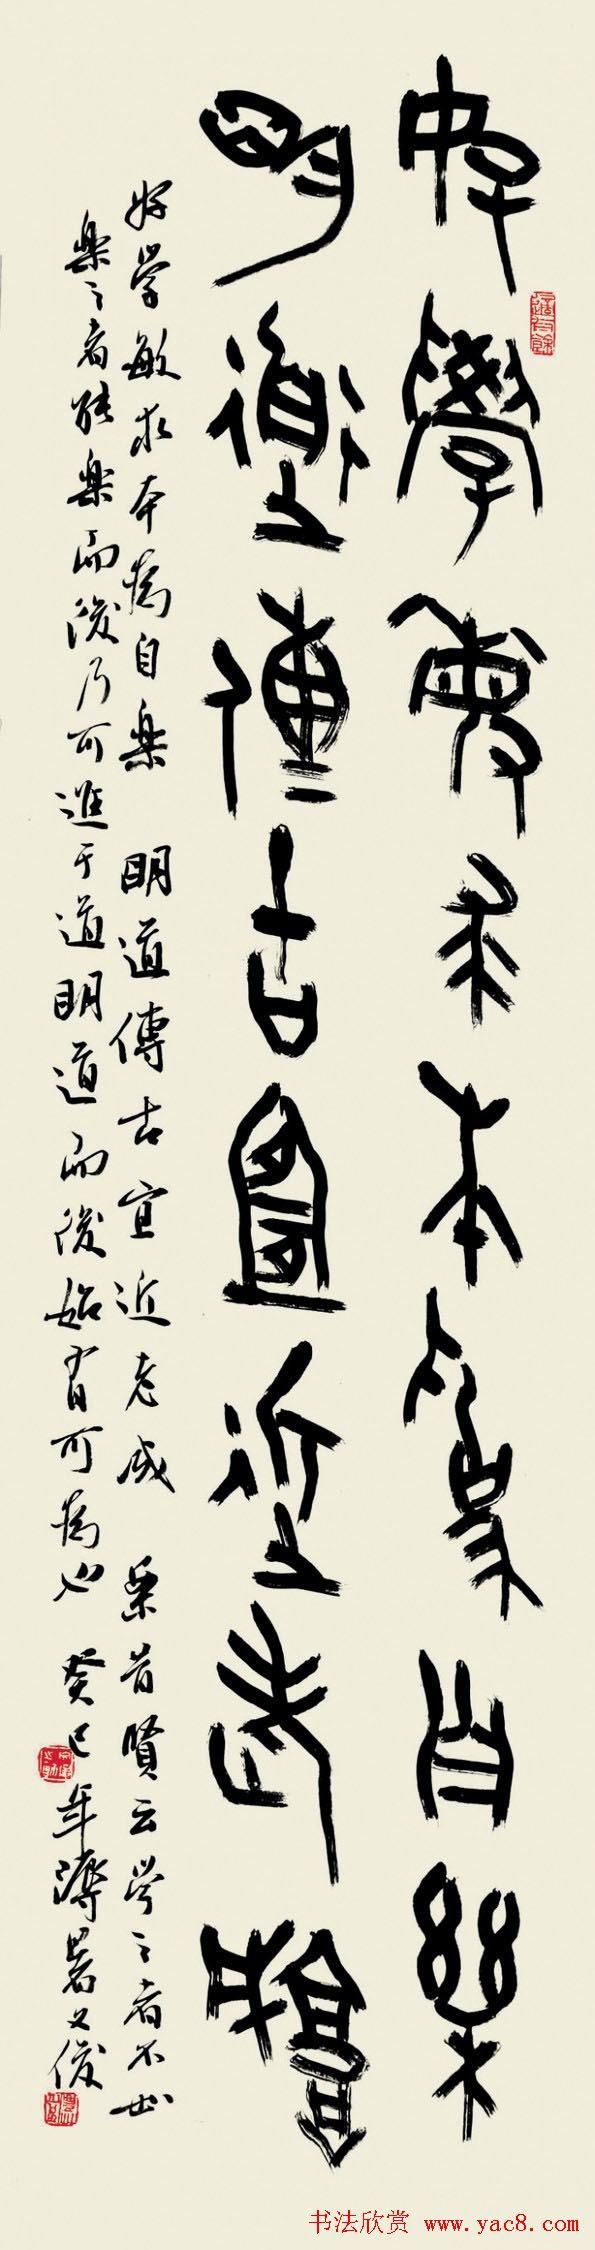 好學敏求本為自樂
明道傳古宜近老成
好学敏求本为自楽 明道傳古宜近老成 昔賢云学之者不如
楽之者能楽而後乃可進于道明道而後始有可为也 癸巳年溽暑又俊
书法欣赏 www.yac8.com